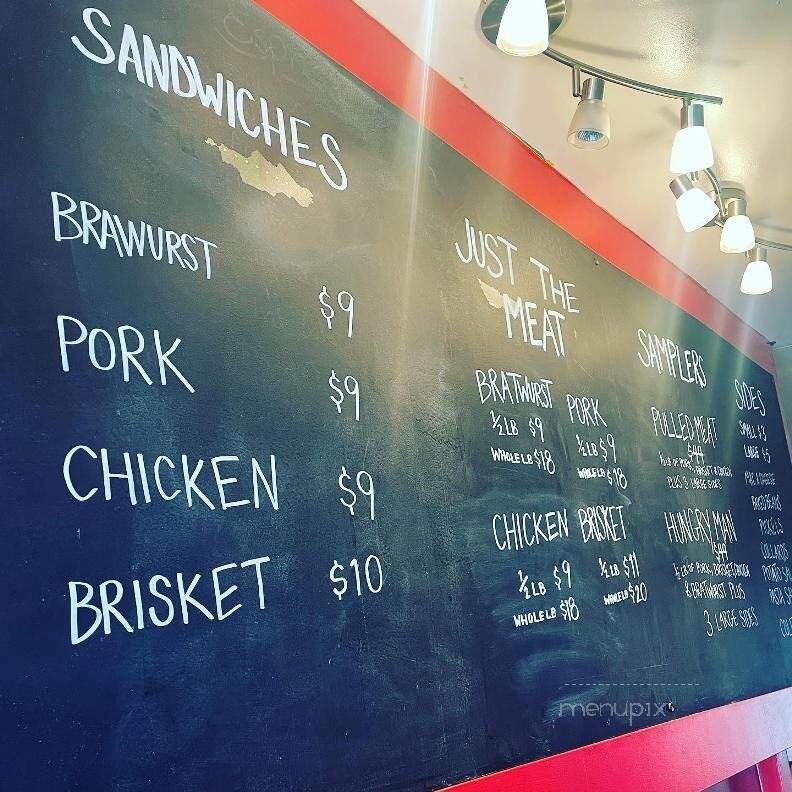 SANDWICHES
BRAWURST $9
PORK $9
CHICKEN $9
BRISKET $10
JUST THE
MEAT
BRATWURST
½ LB $9
WHOLE LB $18
PORK
½ LB $9
WHOLE LB $18
CHICKEN
½ LB $9
WHOLE LB $18
BRISKET
½ LB $11
WHOLE LB $20
SAMPLERS
PULLED MEAT
$44
½ LB OF PORK, BRISKET & CHICKEN
PLUS 3 LARGE SIDES
HUNGRY MAN
½ LB OF PORK, BRISKET, CHICKEN
& BRATWURST PLUS
3 LARGE SIDES
SIDES
SMALL $3
LARGE $5
MAC & CHEESE
BAKED BEANS
PICKLES
COLLARDS
POTATO SA
PASTA SA
COLE
menupix